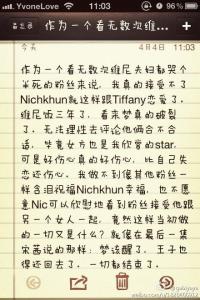 YvoneLove 11:03 96%
作为一个看无数次维...
今天 4月4日 11:03
作为一个看无数次维尼夫妇都哭个
半死的粉丝来说，我真的接受不了
Nichkhun就这样跟Tiffany恋爱了。
维尼饭三年了，看来梦真的破裂
了。无法理性去评论他俩合不合
适，毕竟女方也是我欣赏的star，
可是好伤心真的好伤心，比自己失
恋还伤心，我做不到像其他粉丝一
样含泪祝福Nichkhun幸福，也不愿
意Nic可以欣慰地看到粉丝接受他跟
另一个女人一起，竟然这样当初做
的一切又是什么？就像在最后一集
宋茜说的那样：梦该醒了，王子也
得还回去了，一切都结束了。